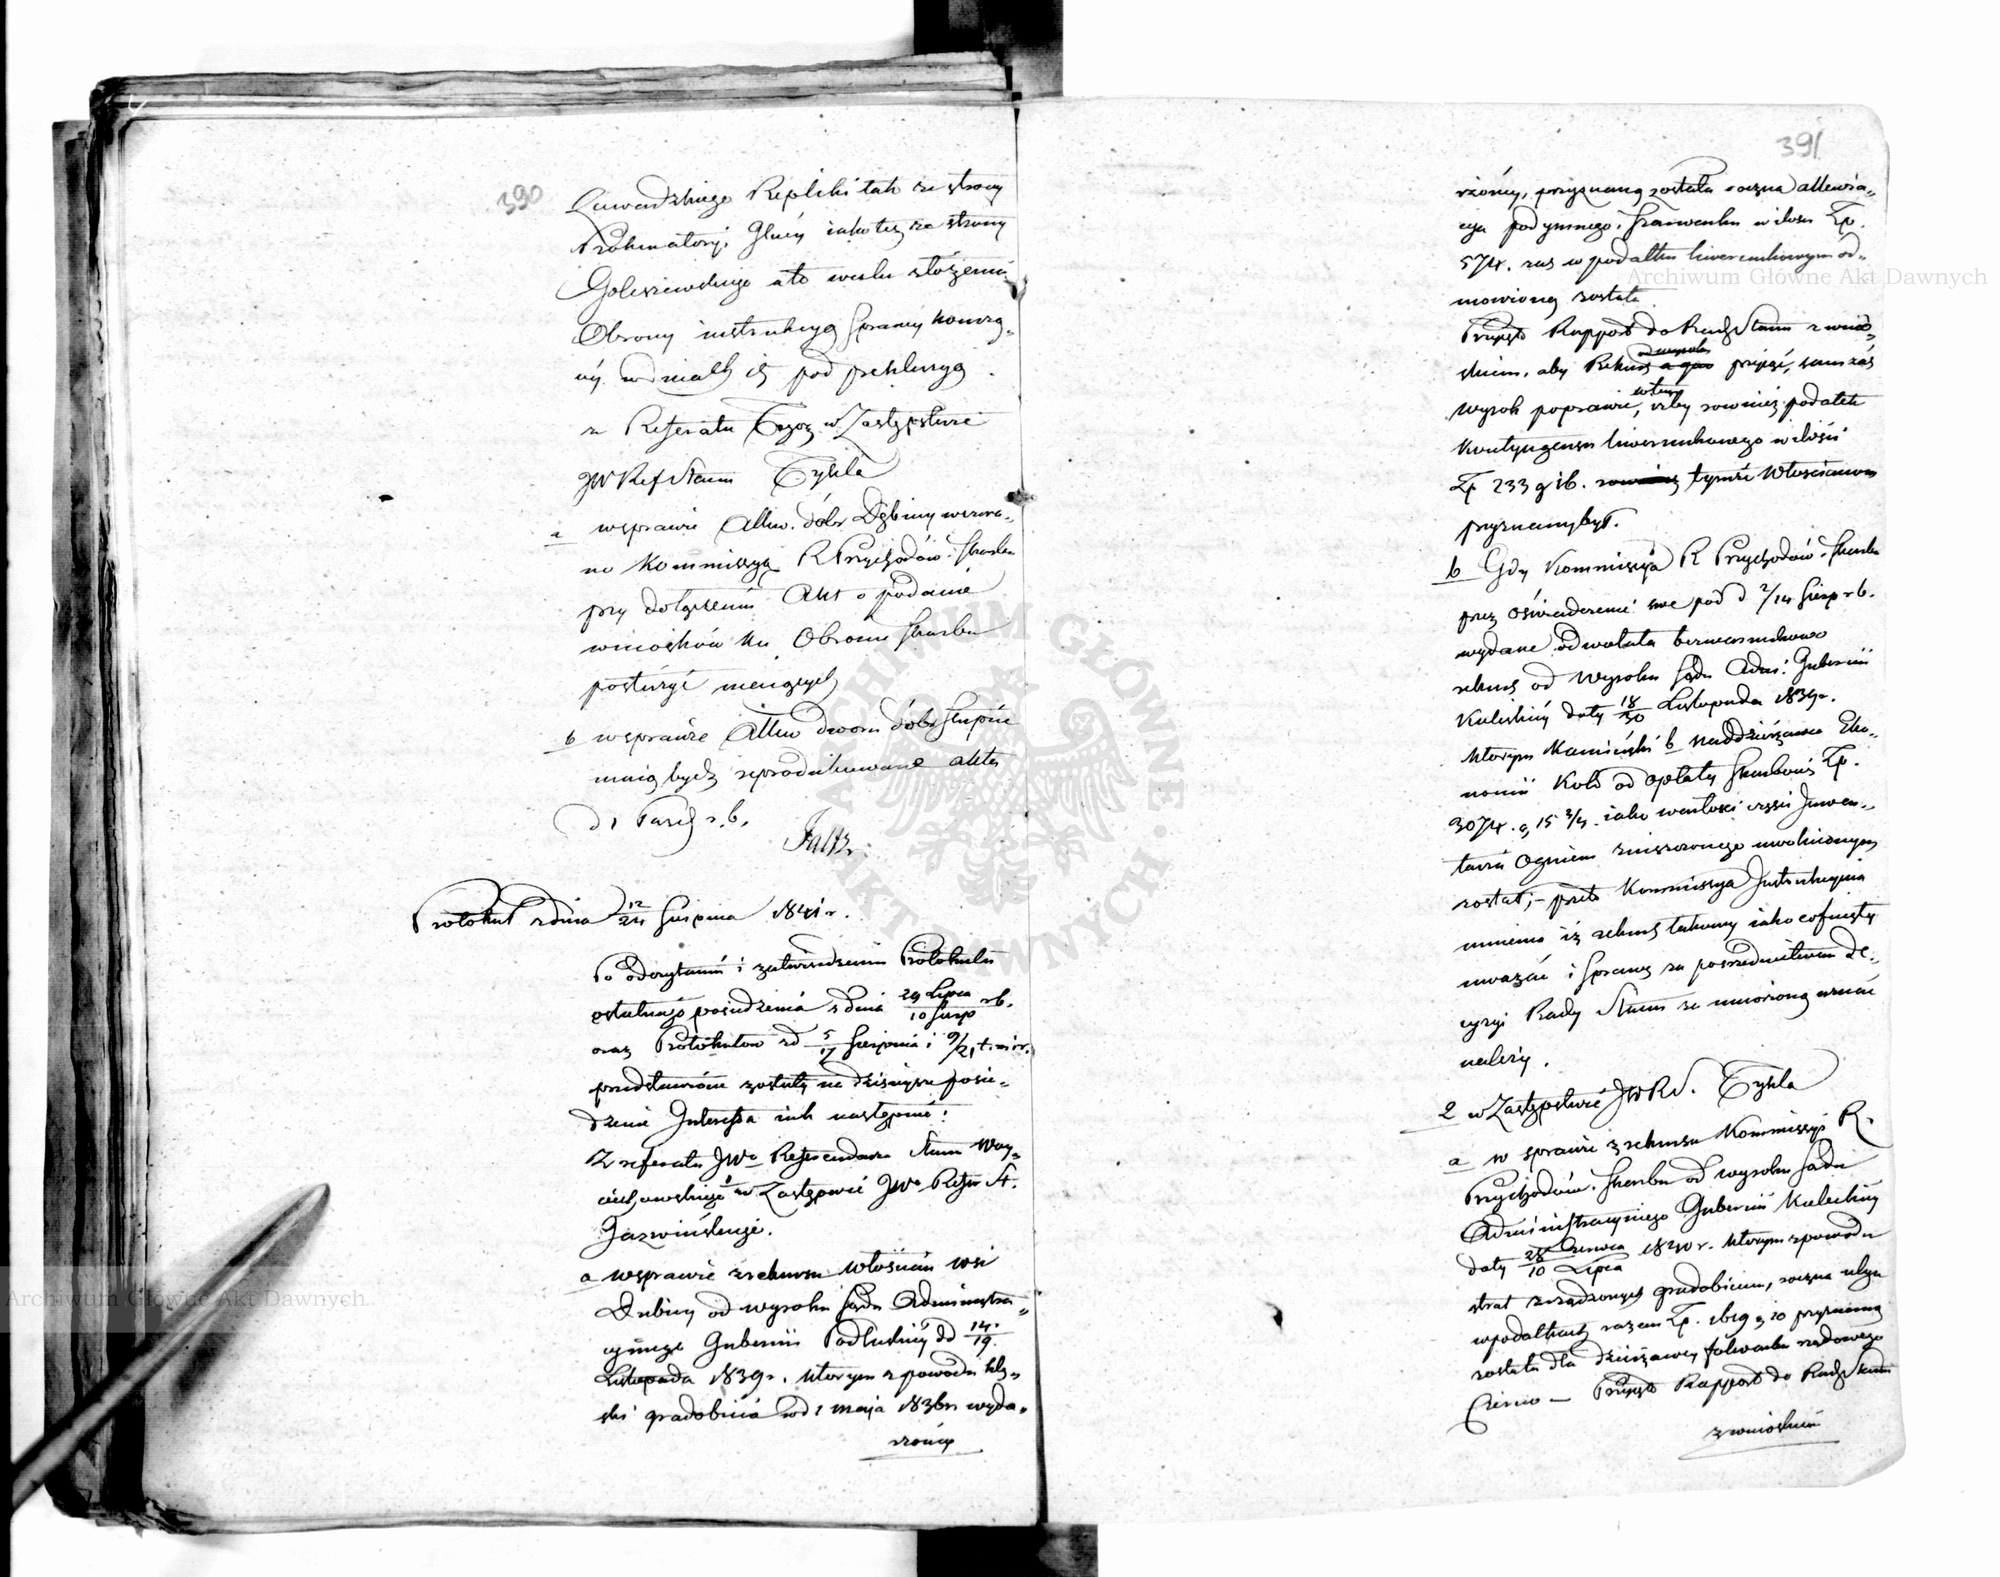 390
Zawadzkiego Repliki tak ze strony
Prokuratoryi Głnéy iako téż ze strony
Goliszewskiego a to w celu złożenia
Obrony instrukcyą sprawy
pod prekluzyą.
z Referatu Tegoż w Zastępstwie
JW Ref Stanu Tykla
a w sprawie Allew. dóbr Dębiny wezwa„
no Kommissyą R Przychodów i Skarbu
przy dołączeniu Akt o podanie
wniosków ku Obronie Skarbu
posłużyć mogących
b w sprawie Allew dworu dóbr Słupia
maią bydź reprodukowane akta
d 1 Paźd r. b.
Protokuł z dnia 12/24 Sierpnia 1841 r.
Po odczytaniu i zatwierdzeniu Protokułu
ostatniego posiedzenia z dnia 29 Lipca/10 Sierp r b.
oraz Protokułów z d 5/17 Sierpnia i 9/21 t. m i r.
przedstawione zostały na dzisieysze posie„
dzenie Interessa iak następuie:
Z referatu JWo Referendarza Stanu Woy„
ciechowskiego w Zastępstwie JWo Refer St.
Jazwińskiego.
a w sprawie z rekursu Włościan wsi
Dębiny od wyroku Sądu Administra„
cyinego Gubernii Podlaskiéy dd 14/19
Listopada 1839 r. którym z powodu klę„
ski gradobicia w d 1 maja 1836 r wyda„
rzonéy
391
rzonéy, przyznaną została roczna allewia„
cya podymnego i szarwarku w ilości Zp.
574. zaś w podatku liwerunkowym od„
mowioną została
Przyięto Rapport do Rady Stanu z wnio„
skiem, aby Rekurs a quo od wyroku przyiąć, sam zaś
Wyrok poprawić, w tem iżby również podatek
Kontyngensu liwerunkowego w ilości
Zp 233 g 16. rownież tymże Włościanom
przyznany był.
b Gdy Kommissya R Przychodów i Skarbu
przez oświadczenie swe pod d 2/14 Sierp r b.
wydane odwołała bezwarunkowo
rekurs od Wyroku Sądu Adm: Gubernii
Kaliskiéy daty 18/30 Listopada 1839 r.
którym Kamiński b naddzierżawca Eko„
nomii Koło od opłaty Skarbowi Zp.
3074. g 15 3/4. iako wartości części Inwen„
tarza Ogniem zniszczonego uwolnionym
został, – przeto Kommissya Instrukcyina
mniema iż rekurs takowy iako cofnięty
uważać i sprawę za pośrednictwem De„
cyzyi Rady Stanu za umorzoną uznać
należy.
2 w Zastępstwie JWRS. Tykla
a w sprawie z rekursu Kommissyi R.
Przychodów i Skarbu od wyroku Sądu
Administracyinego Gubernii Kaliskiéy
daty 28 Czerwca/10 Lipca 1840 r. którym z powodu
strat zrządzonych gradobiciem, roczna ulga
w podatkach razem Zp. 1619 g 10 przyznaną
została dla dzierżawcy folwarku rządowego
– Przyięto Rapport do Rady Stanu
z wnioskiem
Archiwum Główne Akt Dawnych
Archiwum Główne Akt Dawnych
ARCHIWUM GŁÓWNE AKT DAWNYCH